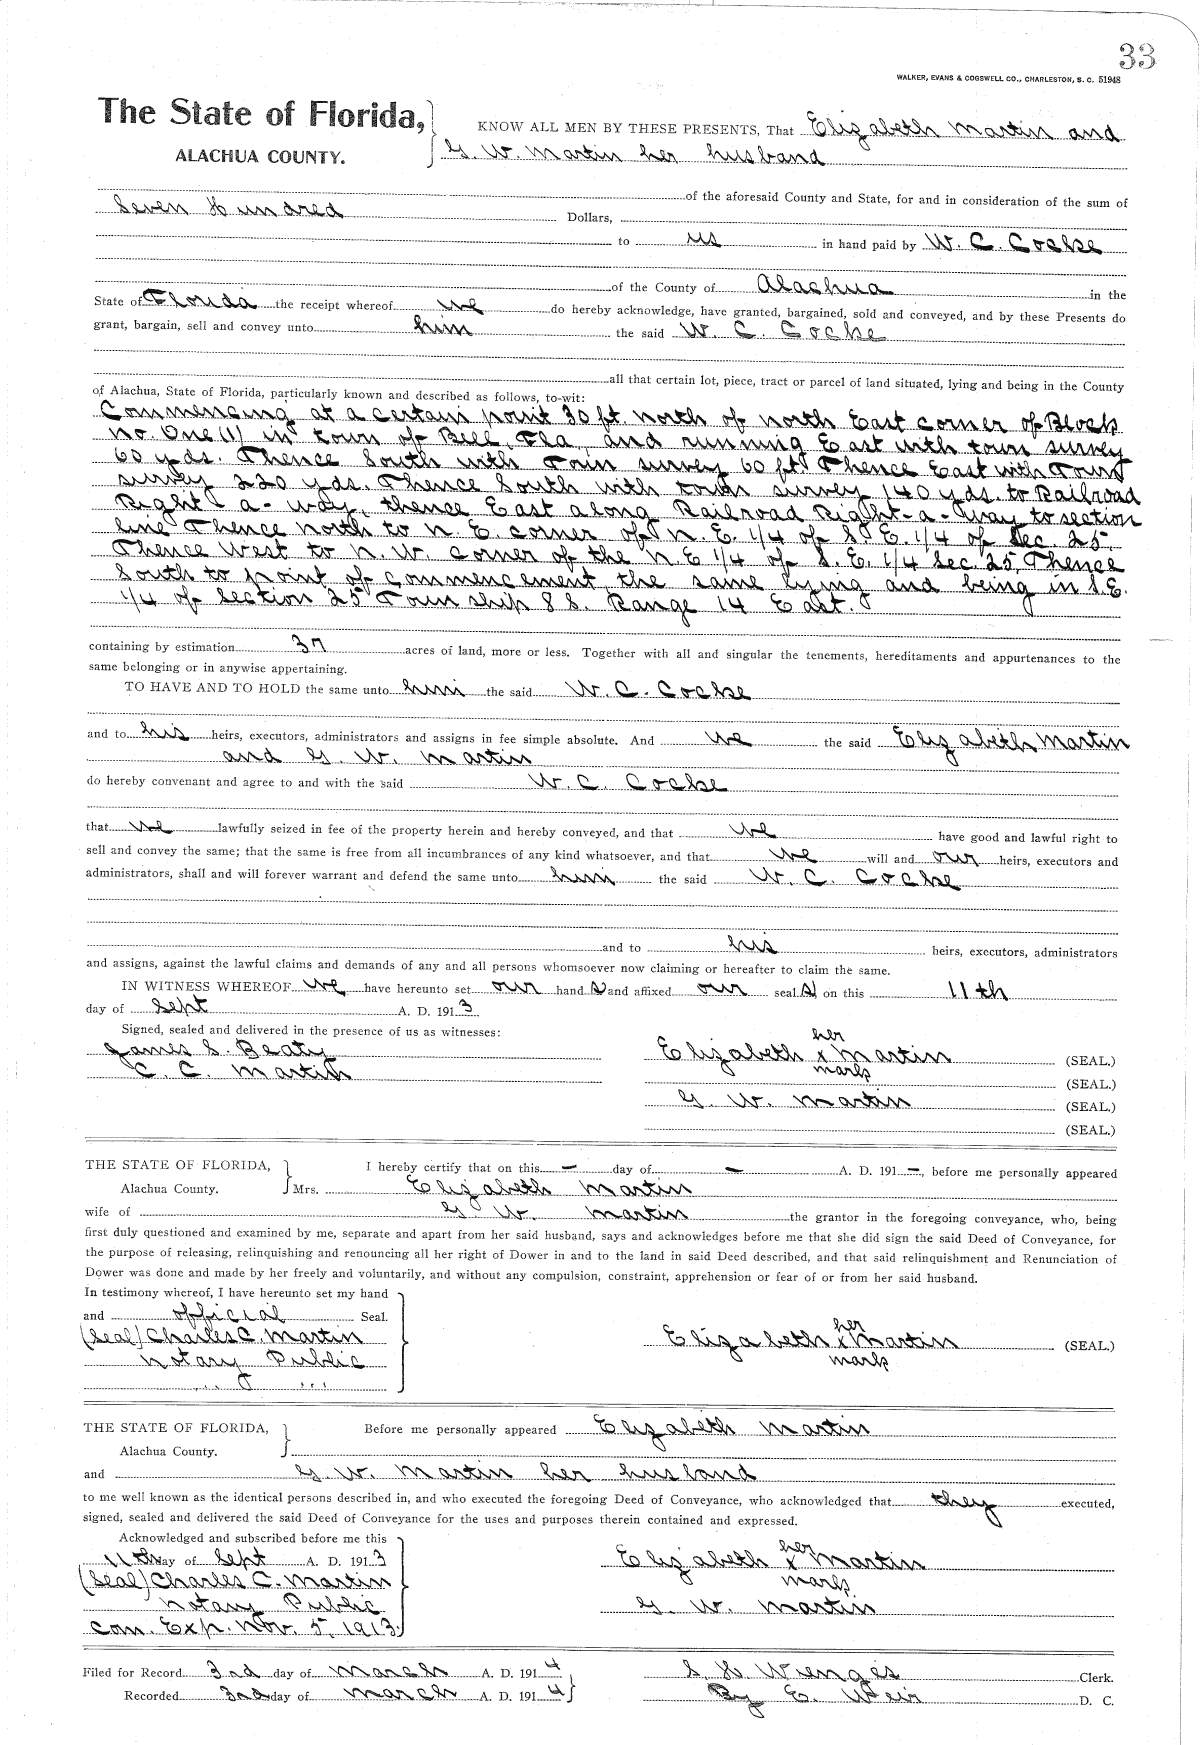 33
WALKER, EVANS & COGSWELL CO., CHARLESTON, S. C. 51948
The State of Florida,
ALACHUA COUNTY.
KNOW ALL MEN BY THESE PRESENTS, That Elizabeth Martin and
G. W. Martin her husband
of the aforesaid County and State, for and in consideration of the sum of
Seven Hundred Dollars,
to us in hand paid by W. C. Cocke
of the County of Alachua in the
State of Florida the receipt whereof we do hereby acknowledge, have granted, bargained, sold and conveyed, and by these Presents do
grant, bargain, sell and convey unto him the said W. C. Cocke
all that certain lot, piece, tract or parcel of land situated, lying and being in the County
of Alachua, State of Florida, particularly known and described as follows, to-wit:
Commencing at a certain point 30 ft. north of north East corner of Block
no. One (1) in town of Bell, Fla, and running East with town survey
60 yds. Thence South with Town survey 60 ft Thence East with Town
survey 220 yds. Thence South with town survey 140 yds. to Railroad
Right-a-way, thence East along Railroad Right-a-way to section
line Thence north to N. E. corner of N. E. 1/4 of S. E. 1/4 of Sec. 25.
Thence West to N. W. corner of the N. E 1/4 of S. E. 1/4 Sec. 25, Thence
South to point of commencement, the same lying and being in S. E.
1/4 of section 25 Township 8 S. Range 14 East.
containing by estimation 37 acres of land, more or less. Together with all and singular the tenements, hereditaments and appurtenances to the
same belonging or in anywise appertaining.
TO HAVE AND TO HOLD the same unto him the said W. C. Cocke
and to his heirs, executors, administrators and assigns in fee simple absolute. And we the said Elizabeth Martin
and G. W. Martin
do hereby convenant and agree to and with the said W. C. Cocke
that we lawfully seized in fee of the property herein and hereby conveyed, and that we have good and lawful right to
sell and convey the same; that the same is free from all incumbrances of any kind whatsoever, and that we will and our heirs, executors and
administrators, shall and will forever warrant and defend the same unto him the said W. C. Cocke
and to his heirs, executors, administrators
and assigns, against the lawful claims and demands of any and all persons whomsoever now claiming or hereafter to claim the same.
IN WITNESS WHEREOF we have hereunto set our hand s and affixed our seal s on this 11th
day of Sept A. D. 1913
Signed, sealed and delivered in the presence of us as witnesses:
James S. Beaty
C. C. Martin
her
Elizabeth x Martin (SEAL.)
mark
(SEAL.)
G. W. Martin (SEAL.)
(SEAL.)
THE STATE OF FLORIDA,
Alachua County.
I hereby certify that on this — day of — A. D. 191 —, before me personally appeared
Mrs. Elizabeth Martin
wife of G W. Martin the grantor in the foregoing conveyance, who, being
first duly questioned and examined by me, separate and apart from her said husband, says and acknowledges before me that she did sign the said Deed of Conveyance, for
the purpose of releasing, relinquishing and renouncing all her right of Dower in and to the land in said Deed described, and that said relinquishment and Renunciation of
Dower was done and made by her freely and voluntarily, and without any compulsion, constraint, apprehension or fear of or from her said husband.
In testimony whereof, I have hereunto set my hand
and official Seal.
(Seal) Charles C. Martin
Notary Public
her
Elizabeth x Martin (SEAL.)
mark
THE STATE OF FLORIDA,
Alachua County.
Before me personally appeared Elizabeth Martin
and G. W. Martin her husband
to me well known as the identical persons described in, and who executed the foregoing Deed of Conveyance, who acknowledged that they executed,
signed, sealed and delivered the said Deed of Conveyance for the uses and purposes therein contained and expressed.
Acknowledged and subscribed before me this
11th day of Sept A. D. 1913
(Seal) Charles C. Martin
Notary Public
Com. Exp. Nov. 5, 1913.
her
Elizabeth x Martin
mark
G. W. Martin
Filed for Record 3rd day of March A. D. 1914
Recorded 3rd day of March A. D. 1914
S. H. Wienges Clerk.
By E. Weir D. C.